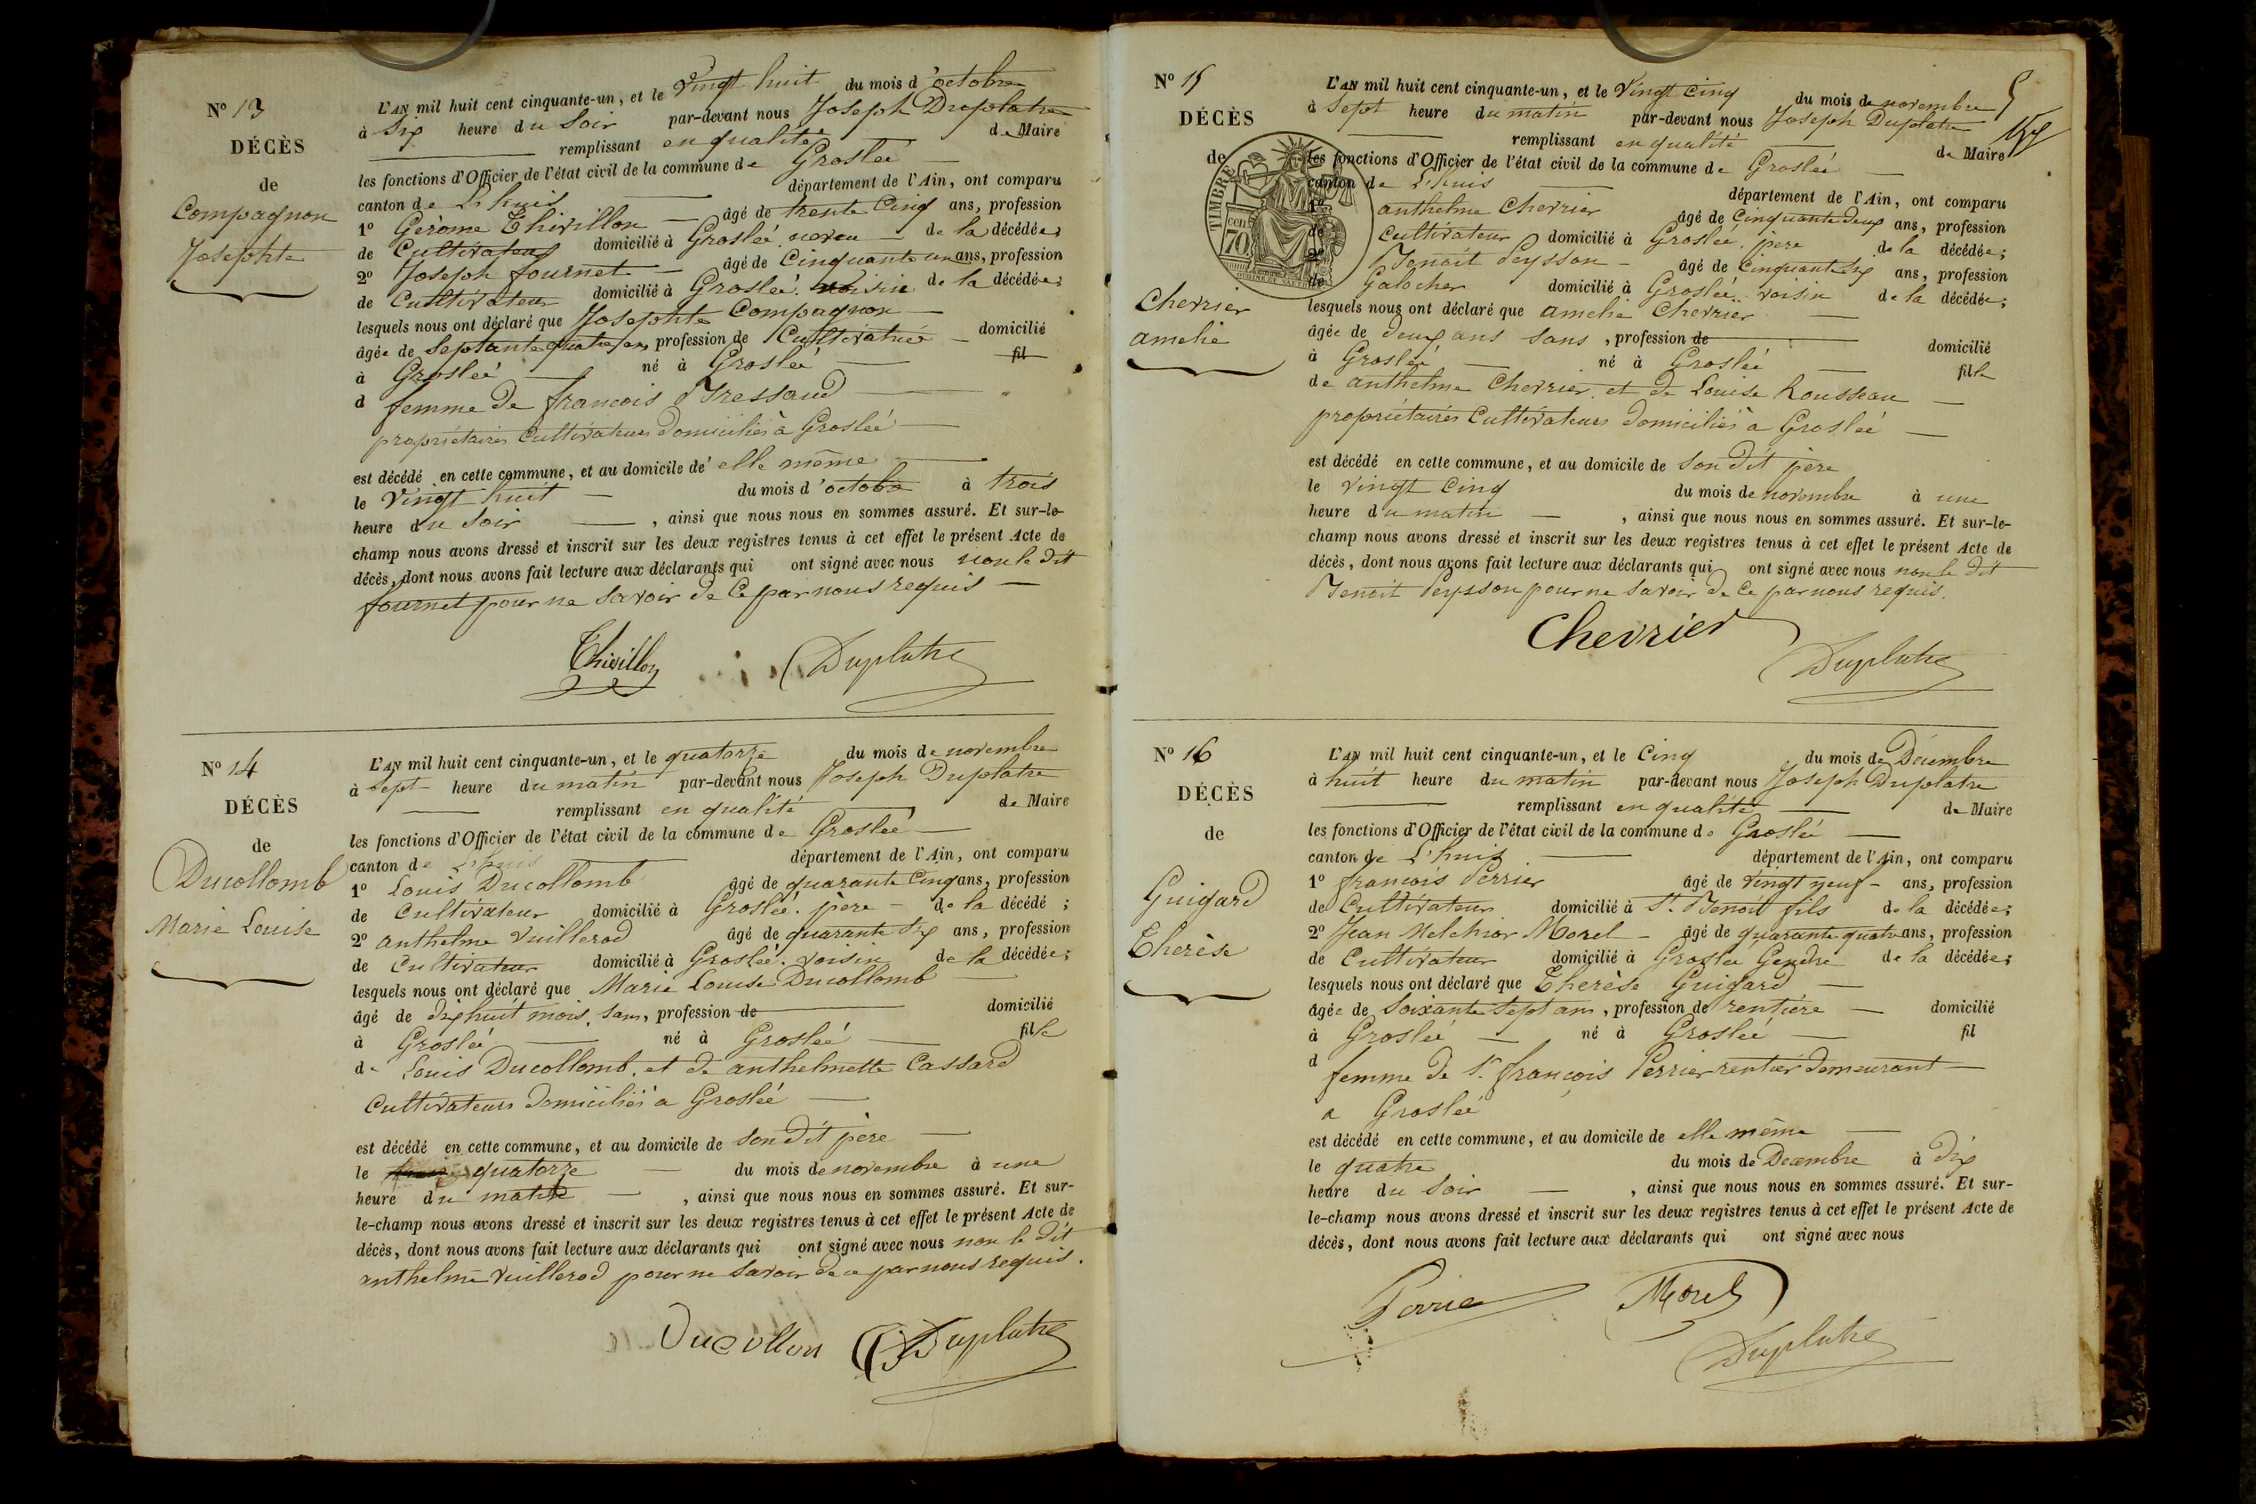 N° 13
DÉCÈS
de
Compagnon
Josephte
L'AN mil huit cent cinquante-un, et le Vingt huit du mois d'octobre
à Six heure du Soir par-devant nous Joseph Duplatre
remplissant en qualité de Maire
les fonctions d'Officier de l'état civil de la commune de Groslée
canton de L'huis département de l'Ain, ont comparu
1° Gérome Thivillon âgé de trente cinq ans, profession
de Cultivateur domicilié à Groslée, neveu de la décédée;
2° Joseph fournet âgé de Cinquante un ans, profession
de Cultivateur domicilié à Groslée. voisin de la décédée;
lesquels nous ont déclaré que Josephte Compagnon
âgée de Septante quatre ans, profession de Cultivatrice domicilié
à Groslée né à Groslée fil
d femme de francois Tressaud
propriétaires Cultivateurs domiciliés à Groslée
est décédé en cette commune, et au domicile de elle même
le Vingt huit du mois d'octobre à trois
heure du Soir, ainsi que nous nous en sommes assuré. Et sur-le-
champ nous avons dressé et inscrit sur les deux registres tenus à cet effet le présent Acte de
décès, dont nous avons fait lecture aux déclarants qui ont signé avec nous non le dit
fournet pour ne Savoir de Ce par nous requis
Thivillon Duplatre
N° 14
DÉCÈS
de
Ducollomb
Marie Louise
L'AN mil huit cent cinquante-un, et le quatorze du mois de novembre
à Sept heure du matin par-devant nous Joseph Duplatre
remplissant en qualité de Maire
les fonctions d'Officier de l'état civil de la commune de Groslée
canton de L'huis département de l'Ain, ont comparu
1° Louis Ducollomb âgé de quarante Cinq ans, profession
de Cultivateur domicilié à Groslée. père de la décédé ;
2° anthelme Vuillerod âgé de quarante Six ans, profession
de Cultivateur domicilié à Groslée. voisin de la décédée;
lesquels nous ont déclaré que Marie Louise Ducollomb
âgé de dix huit mois. Sans, profession de domicilié
à Groslée né à Groslée fille
de Louis Ducollomb. et de anthelmette Cassard
Cultivateurs domiciliés à Groslée
est décédé en cette commune, et au domicile de Son dit père
le quatorze du mois de novembre à une
heure du matin, ainsi que nous nous en sommes assuré. Et sur-
le-champ nous avons dressé et inscrit sur les deux registres tenus à cet effet le présent Acte de
décès, dont nous avons fait lecture aux déclarants qui ont signé avec nous non le dit
anthelme Vuillerod pour ne Savoir de ce par nous requis.
Ducollon Duplatre
N° 15
DÉCÈS
de
Chevrier
amelie
TIMBRE
cen
70
5
L'AN mil huit cent cinquante-un, et le Vingt Cinq du mois de novembre
à Sept heure du matin par-devant nous Joseph Duplatre
remplissant en qualité de Maire
les fonctions d'Officier de l'état civil de la commune de Groslée
canton de L'huis département de l'Ain, ont comparu
1° anthelme Chevrier âgé de Cinquante deux ans, profession
de Cultivateur domicilié à Groslée. père de la décédée;
2° Benoit Peysson âgé de Cinquante Six ans, profession
de Galocher domicilié à Groslée. voisin de la décédée;
lesquels nous ont déclaré que amelie Chevrier
âgée de deux ans sans, profession de domicilié
à Groslée né à Groslée fille
de anthelme Chevrier. et de Louise Rousseau
propriétaires Cultivateurs domiciliés à Groslée
est décédé en cette commune, et au domicile de Son dit père
le vingt Cinq du mois de novembre à une
heure du matin, ainsi que nous nous en sommes assuré. Et sur-le-
champ nous avons dressé et inscrit sur les deux registres tenus à cet effet le présent Acte de
décès, dont nous avons fait lecture aux déclarants qui ont signé avec nous non le dit
Benoit Peysson pour ne Savoir de Ce par nous requis.
Chevrier Duplatre
N° 16
DÉCÈS
de
Guigard
Therèse
L'AN mil huit cent cinquante-un, et le Cinq du mois de Décembre
à huit heure du matin par-devant nous Joseph Duplatre
remplissant en qualité de Maire
les fonctions d'Officier de l'état civil de la commune de Groslée
canton de L'huis département de l'Ain, ont comparu
1° francois Perrier âgé de Vingt neuf ans, profession
de Cultivateur domicilié à St. Benoit fils de la décédée;
2° Jean Melchior Morel âgé de quarante quatre ans, profession
de Cultivateur domicilié à Groslée Gendre de la décédée;
lesquels nous ont déclaré que Therèse Guigard
âgée de Soixante Sept ans, profession de rentière domicilié
à Groslée né à Groslée fil
d femme de Sr. françois Perrier rentier demeurant
a Groslée
est décédé en cette commune, et au domicile de elle même
le quatre du mois de Decembre à Dix
heure du Soir, ainsi que nous nous en sommes assuré. Et sur-
le-champ nous avons dressé et inscrit sur les deux registres tenus à cet effet le présent Acte de
décès, dont nous avons fait lecture aux déclarants qui ont signé avec nous
Perrier Morel
Duplatre